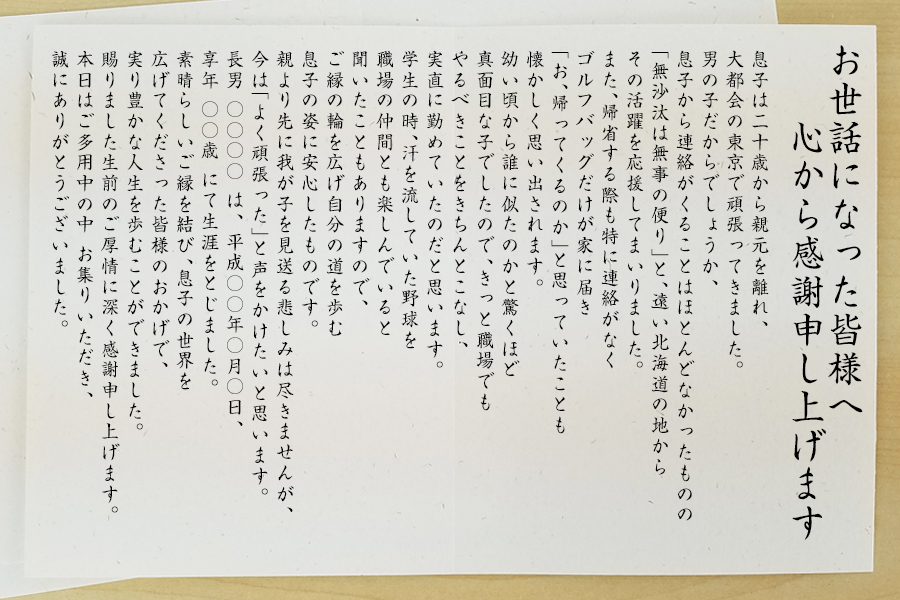 お世話になった皆様へ
心から感謝申し上げます
息子は二十歳から親元を離れ、
大都会の東京で頑張ってきました。
男の子だからでしょうか、
息子から連絡がくることはほとんどなかったものの
「無沙汰は無事の便り」と、遠い北海道の地から
その活躍を応援してまいりました。
また、帰省する際も特に連絡がなく
ゴルフバッグだけが家に届き
「お、帰ってくるのか」と思っていたことも
懐かしく思い出されます。
幼い頃から誰に似たのかと驚くほど
真面目な子でしたので、きっと職場でも
やるべきことをきちんとこなし、
実直に勤めていたのだと思います。
学生の時、汗を流していた野球を
職場の仲間とも楽しんでいると
聞いたこともありますので、
ご縁の輪を広げ自分の道を歩む
息子の姿に安心したものです。
親より先に我が子を見送る悲しみは尽きませんが、
今は「よく頑張った」と声をかけたいと思います。
長男 〇〇〇〇 は、平成〇〇年〇月〇日、
享年 〇〇〇歳 にて生涯をとじました。
素晴らしいご縁を結び、息子の世界を
広げてくださった皆様のおかげで、
実り豊かな人生を歩むことができました。
賜りました生前のご厚情に深く感謝申し上げます。
本日はご多用中の中 お集りいただき、
誠にありがとうございました。